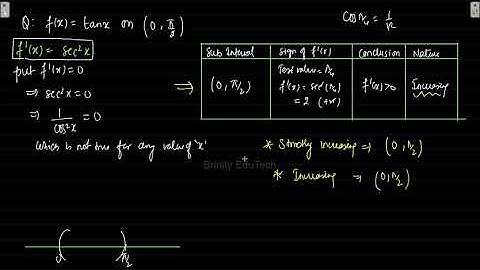 Q: f(x) = tanx on (0, π/2)
Cos π/4 = 1/√2
f'(x) = sec²x
put f'(x) = 0
⇒ sec²x = 0
⇒ 1/Cos²x = 0
which is not true for any value of 'x'
⇒
Sub Interval | Sign of f'(x) | Conclusion | Nature
(0, π/2) | Test value = π/4 f'(x) = sec²(π/4) = 2 (+ve) | f'(x)>0 | Increasing
* Strictly Increasing ⇒ (0, π/2)
Brinity EduTech
* Increasing → (0, π/2)
0 π/2